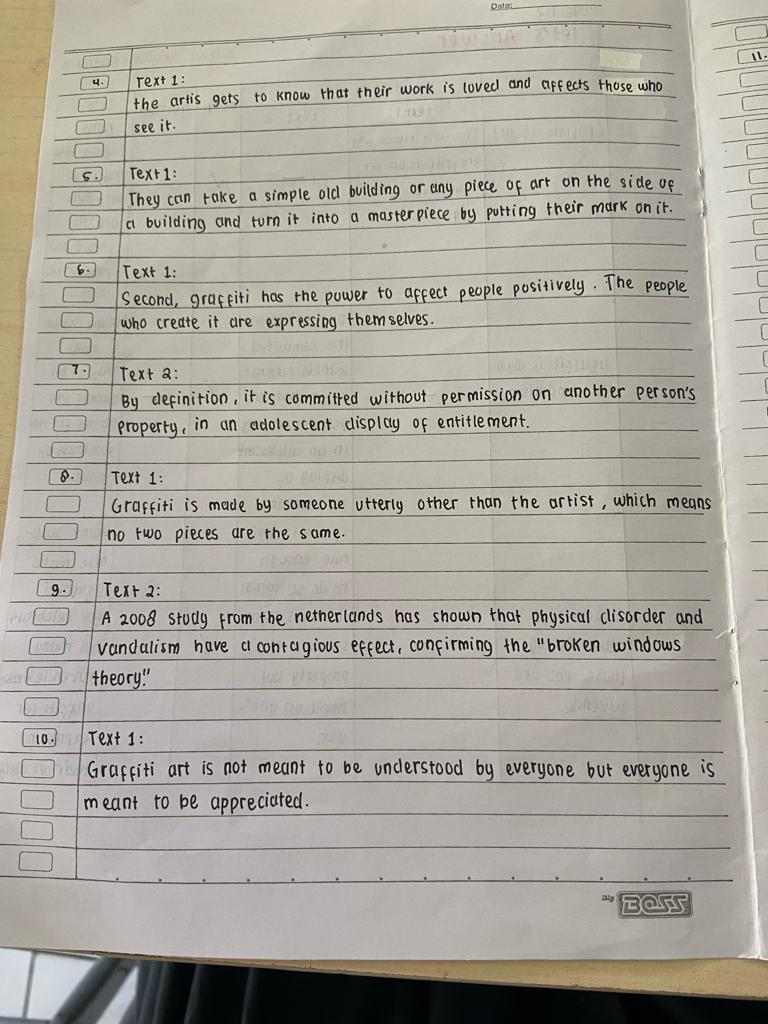 Date:
4. Text 1:
the artis gets to know that their work is loved and affects those who
see it.
5. Text 1:
They can take a simple old building or any piece of art on the side of
a building and turn it into a masterpiece by putting their mark on it.
6. Text 1:
Second, graffiti has the power to affect people positively. The people
who create it are expressing themselves.
7. Text 2:
By definition, it is committed without permission on another person's
property, in an adolescent display of entitlement.
8. Text 1:
Graffiti is made by someone utterly other than the artist, which means
no two pieces are the same.
9. Text 2:
A 2008 study from the netherlands has shown that physical disorder and
vandalism have a contagious effect, confirming the "broken windows
theory."
10. Text 1:
Graffiti art is not meant to be understood by everyone but everyone is
meant to be appreciated.
Big BOSS
11.